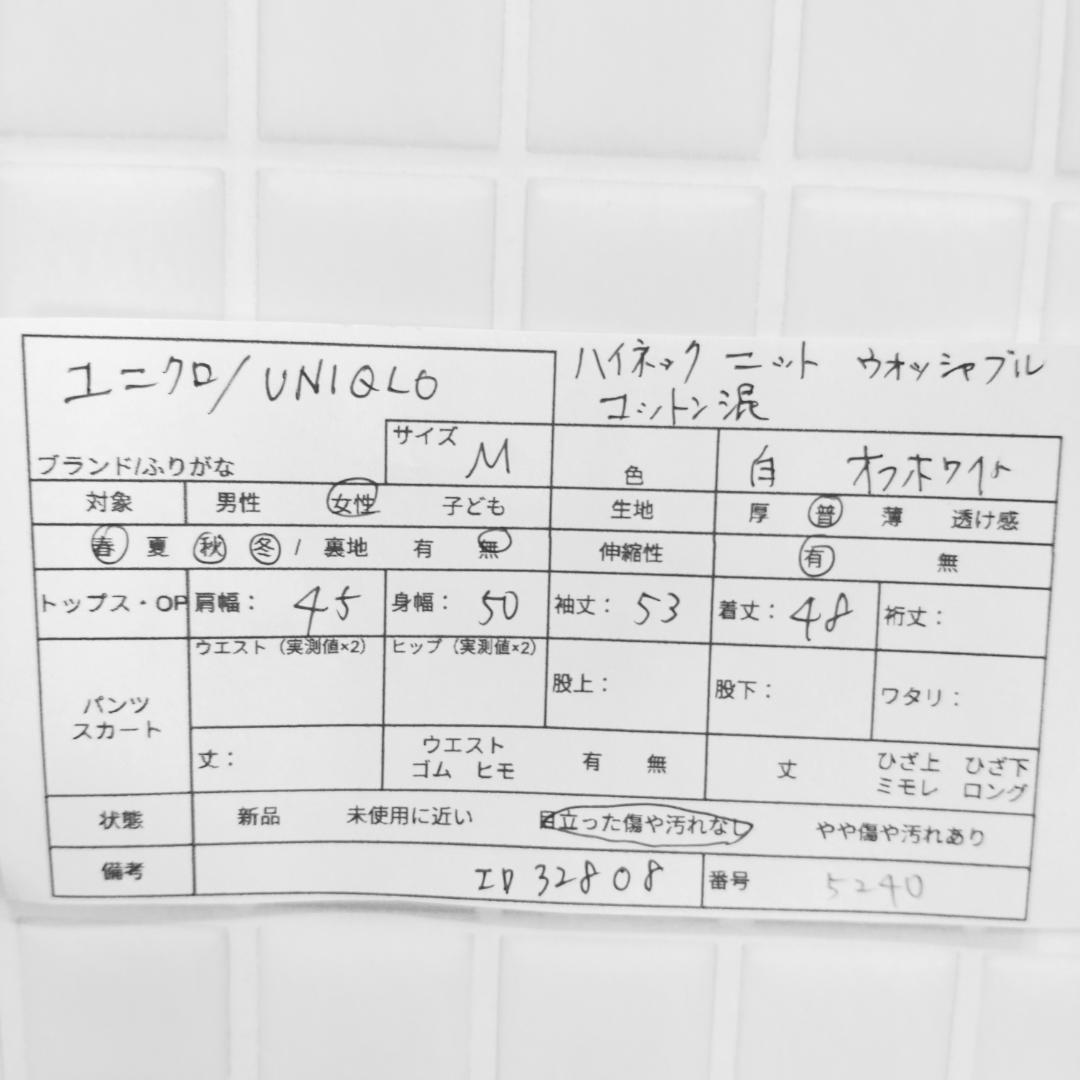 ユニクロ/UNIQLO
ハイネック ニット ウオッシャブル
コットン混
ブランド/ふりがな サイズ M 色 白 オフホワイト
対象 男性 女性 子ども 生地 厚 普 薄 透け感
春 夏 秋 冬 / 裏地 有 無 伸縮性 有 無
トップス・OP 肩幅： 45 身幅： 50 袖丈： 53 着丈： 48 裄丈：
パンツ
スカート
ウエスト（実測値×2） ヒップ（実測値×2） 股上： 股下： ワタリ：
丈： ウエスト
ゴム ヒモ 有 無 丈 ひざ上 ひざ下
ミモレ ロング
状態 新品 未使用に近い 目立った傷や汚れなし やや傷や汚れあり
備考 ID 32808 番号 5240